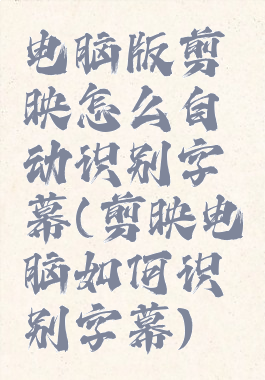 电脑版剪
映怎么自
动识别字
幕(剪映电
脑如何识
别字幕)